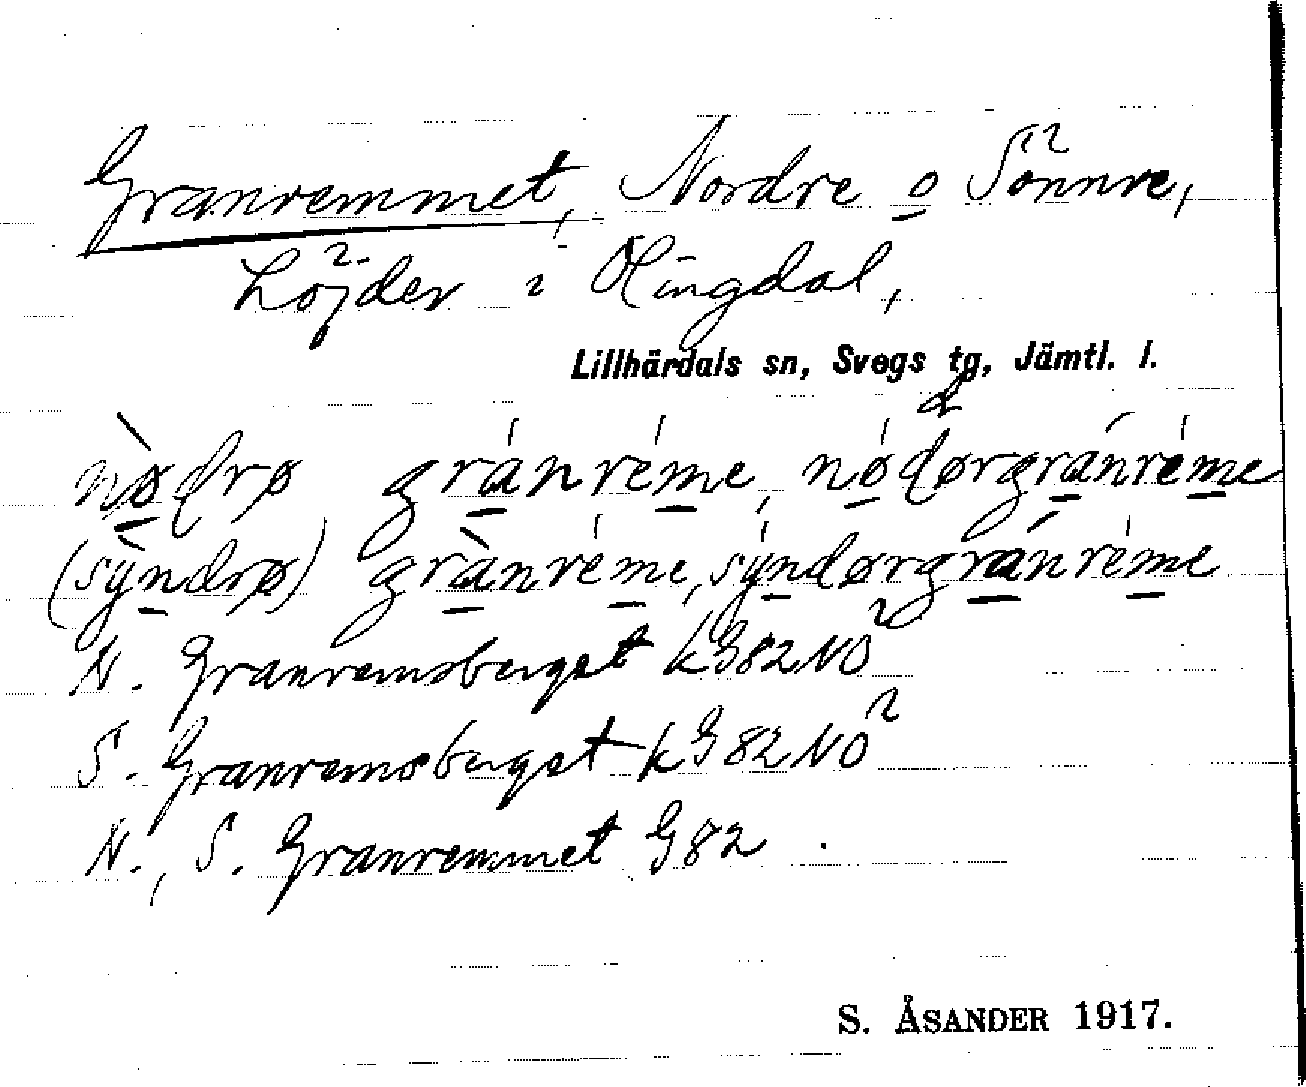 Granremmet, Nordre o Sönnre,
Höjder i Olingdal,
Lillhärdals sn, Svegs tg, Jämtl. l.
nø̀drø gránréme, nǿdørgránréme
(sỳndrø) grànréme, sýndørgránréme
N. Granremsberget kG82NO
S. Granremsberget kG82NO
N., S. Granremmet G82
S. ÅSANDER 1917.